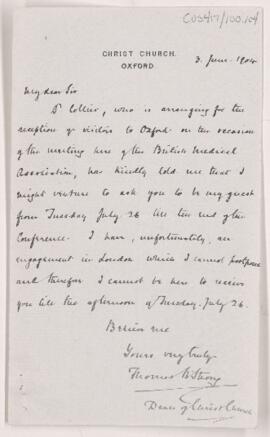 CUS417/100.104
CHRIST CHURCH.
OXFORD.
3. June. 1904
My dear Sir
Dr Collier, who is arranging for the
reception of visitors to Oxford on the occasion
of the meeting here of the British Medical
Association, has kindly told me that I
might venture to ask you to be my guest
from Tuesday July 26 till the end of the
Conference. I have, unfortunately, an
engagement in London which I cannot postpone
and therefore I cannot be here to receive
you till the afternoon of Tuesday. July 26.
Believe me
Yours very truly.
Thomas B. Strong
Dean of Christ Church